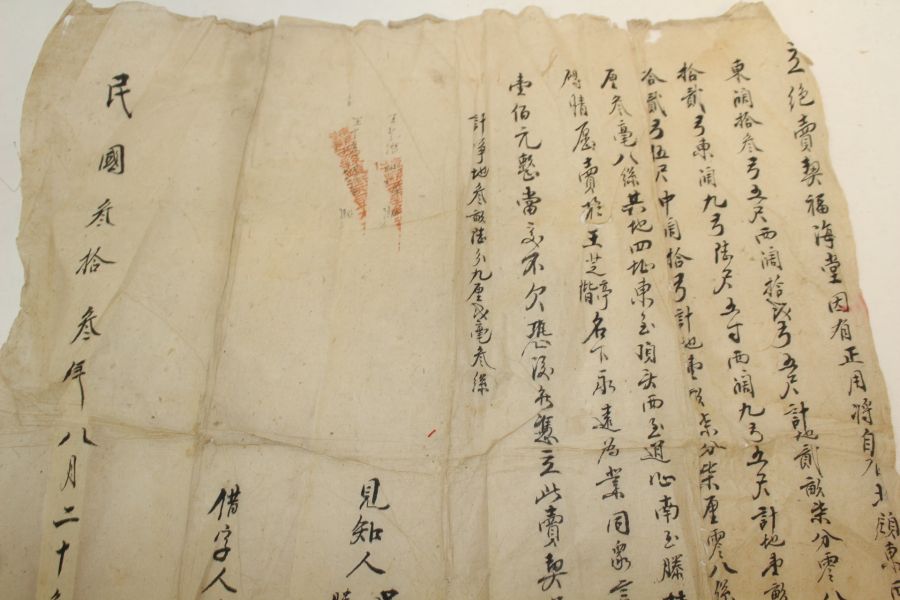 立絕賣契福海堂因有正用將自
東濶拾叁弓五尺西濶拾弍弓五尺計地貳畝柒分零八
拾貳弓東濶九弓陸尺五寸西濶九弓五尺計地壹畝
合貳弓伍尺中濶拾弓計地壹畝柒分柒厘零八絲
厘叁毫八絲其地四址東至頂頭西至道心南至滕
情愿賣於王芝亭階名下永遠為業同眾言
壹佰元整當交不欠恐後無憑立此賣契
計淨地叁畝陸分九厘弍毫叁絲
見知人
借字人
民國叁拾叁年八月二十